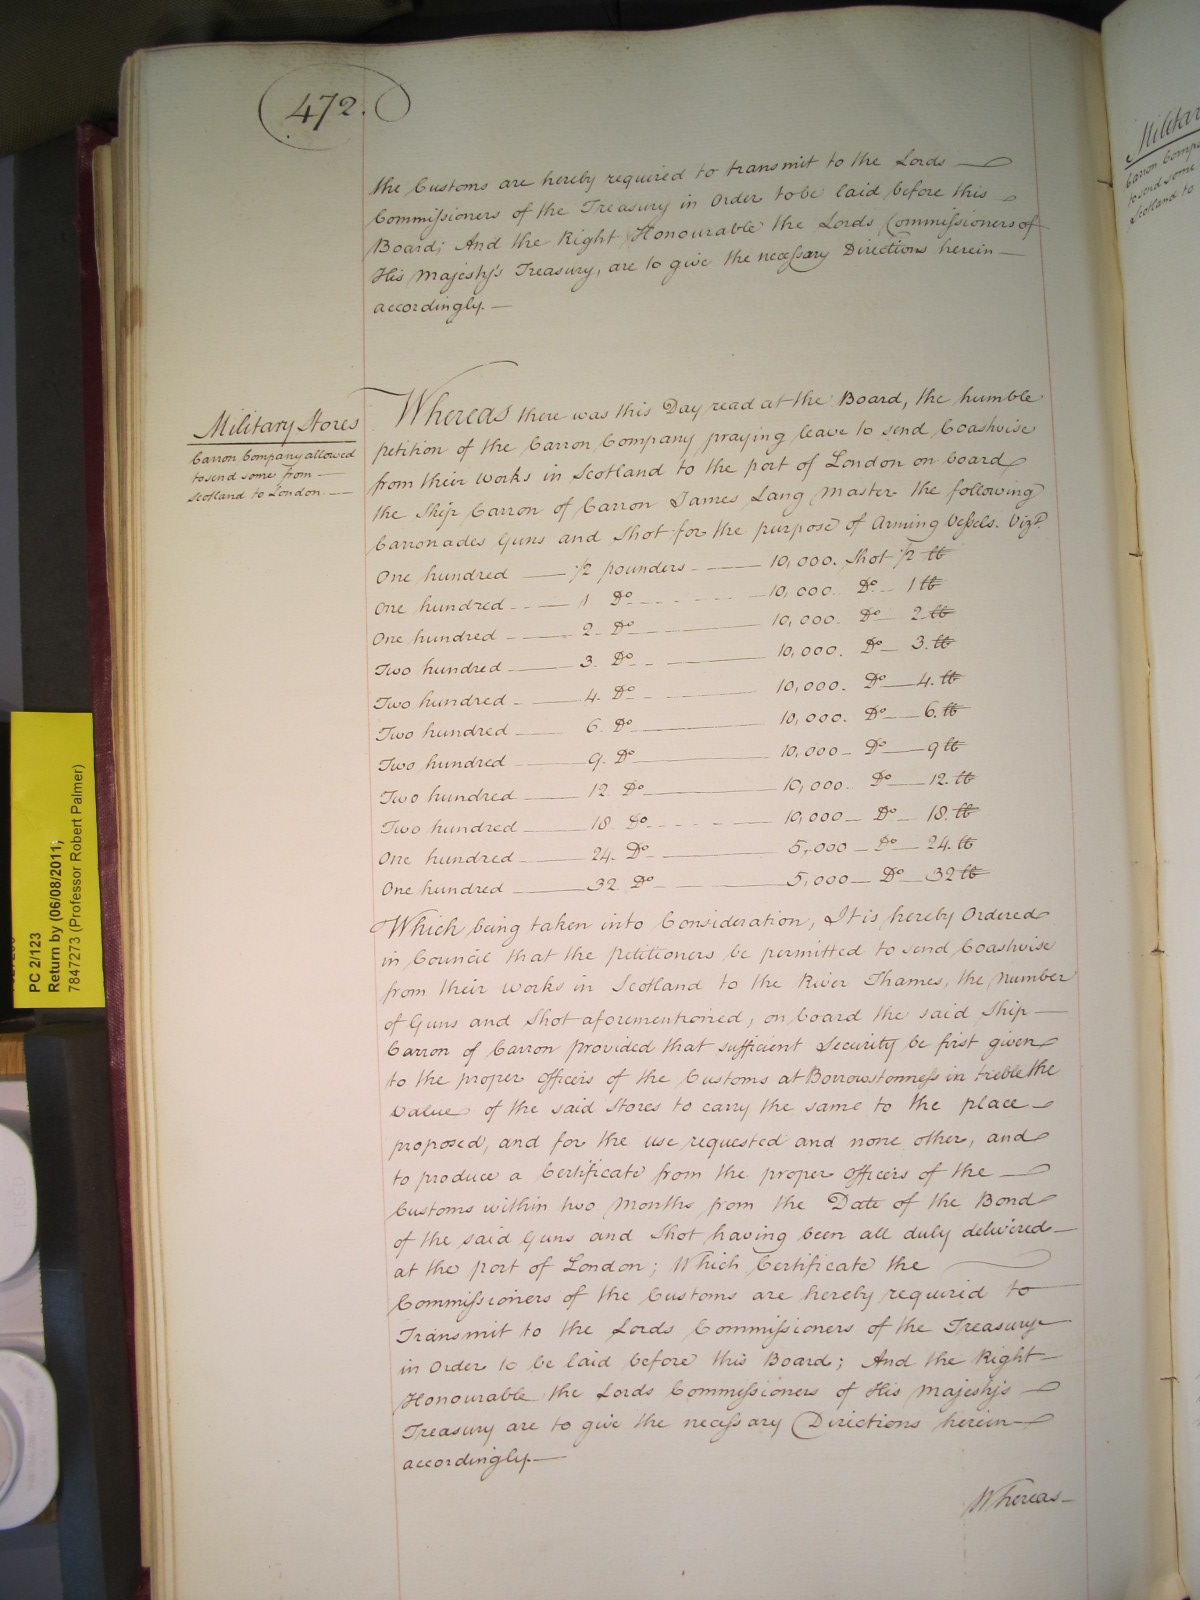 472.
the Customs are hereby required to transmit to the Lords
Commissioners of the Treasury in Order to be laid before this
Board; And the Right Honourable the Lords Commissioners of
His Majesty's Treasury, are to give the necessary Directions herein
accordingly.
Military Stores
Carron Company allowed
to send some from
Scotland to London.
Whereas there was this Day read at the Board, the humble
petition of the Carron Company praying leave to send Coastwise
from their Works in Scotland to the port of London on board
the Ship Carron of Carron James Lang Master the following
Carronades Guns and Shot for the purpose of Arming Vessels. Vizt.
One hundred — 1/2 pounders — 10,000. Shot 1/2 lb
One hundred — 1 Do — 10,000. Do 1 lb
One hundred — 2 Do — 10,000. Do 2 lb
Two hundred — 3 Do — 10,000. Do 3. lb
Two hundred — 4 Do — 10,000. Do 4. lb
Two hundred — 6 Do — 10,000. Do 6. lb
Two hundred — 9 Do — 10,000 Do 9 lb
Two hundred — 12 Do — 10,000. Do 12. lb
Two hundred — 18 Do — 10,000 Do 18. lb
One hundred — 24. Do — 5,000 Do 24. lb
One hundred — 32 Do — 5,000 Do 32 lb
Which being taken into Consideration, It is hereby Ordered
in Council that the Petitioners be permitted to send Coastwise
from their Works in Scotland to the River Thames, the Number
of Guns and Shot aforementioned, on board the said Ship
Carron of Carron provided that sufficient Security be first given
to the proper Officers of the Customs at Borrowstonness in treble the
Value of the said Stores to carry the same to the place
proposed, and for the use requested and none other, and
to produce a Certificate from the proper Officers of the
Customs within two Months from the Date of the Bond
of the said Guns and Shot having been all duly delivered
at the port of London; Which Certificate the
Commissioners of the Customs are hereby required to
Transmit to the Lords Commissioners of the Treasury
in Order to be laid before this Board; And the Right
Honourable the Lords Commissioners of His Majesty's
Treasury are to give the necessary Directions herein
accordingly.
Whereas
PC 2/123
Return by (06/08/2011;
7847273 (Professor Robert Palmer)
Carron Comp
to send some
Scotland to